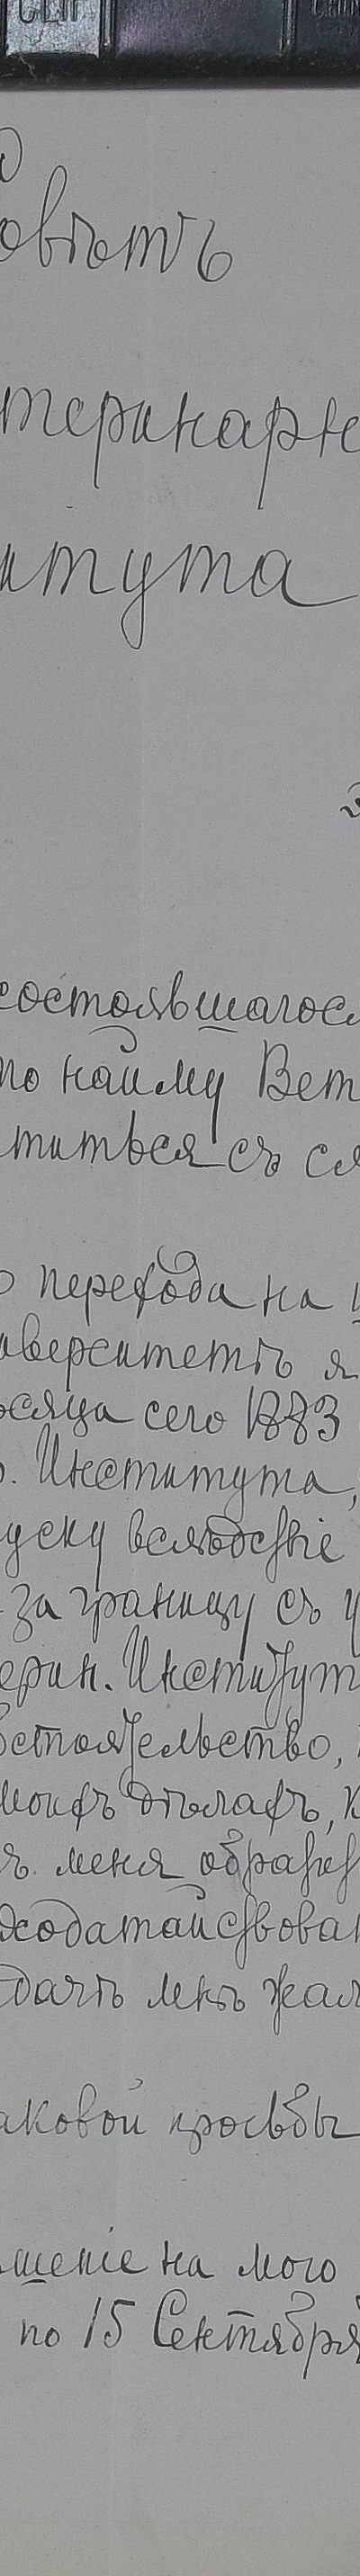 овѣтъ
теринарн
итута
состоявшагося
по найму Вет
титься съ сл
перехода на
иверситетъ я
сяца сего 1883
Института,
уску вслѣдствіе
за границу съ у
ерин. Институт
бстоятельство,
моихъ дѣлахъ, к
меня обра
ходатайствован
дачѣ мнѣ жал
аковой просьбы
шеніе на мого
по 15 Сентября